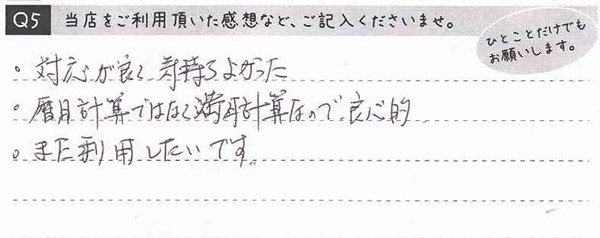 Q5 当店をご利用頂いた感想など、ご記入くださいませ。
ひとことだけでも
お願いします。
・対応が良く気持ちよかった
・暦月計算ではなく満月計算なので、良心的
・また利用したいです。